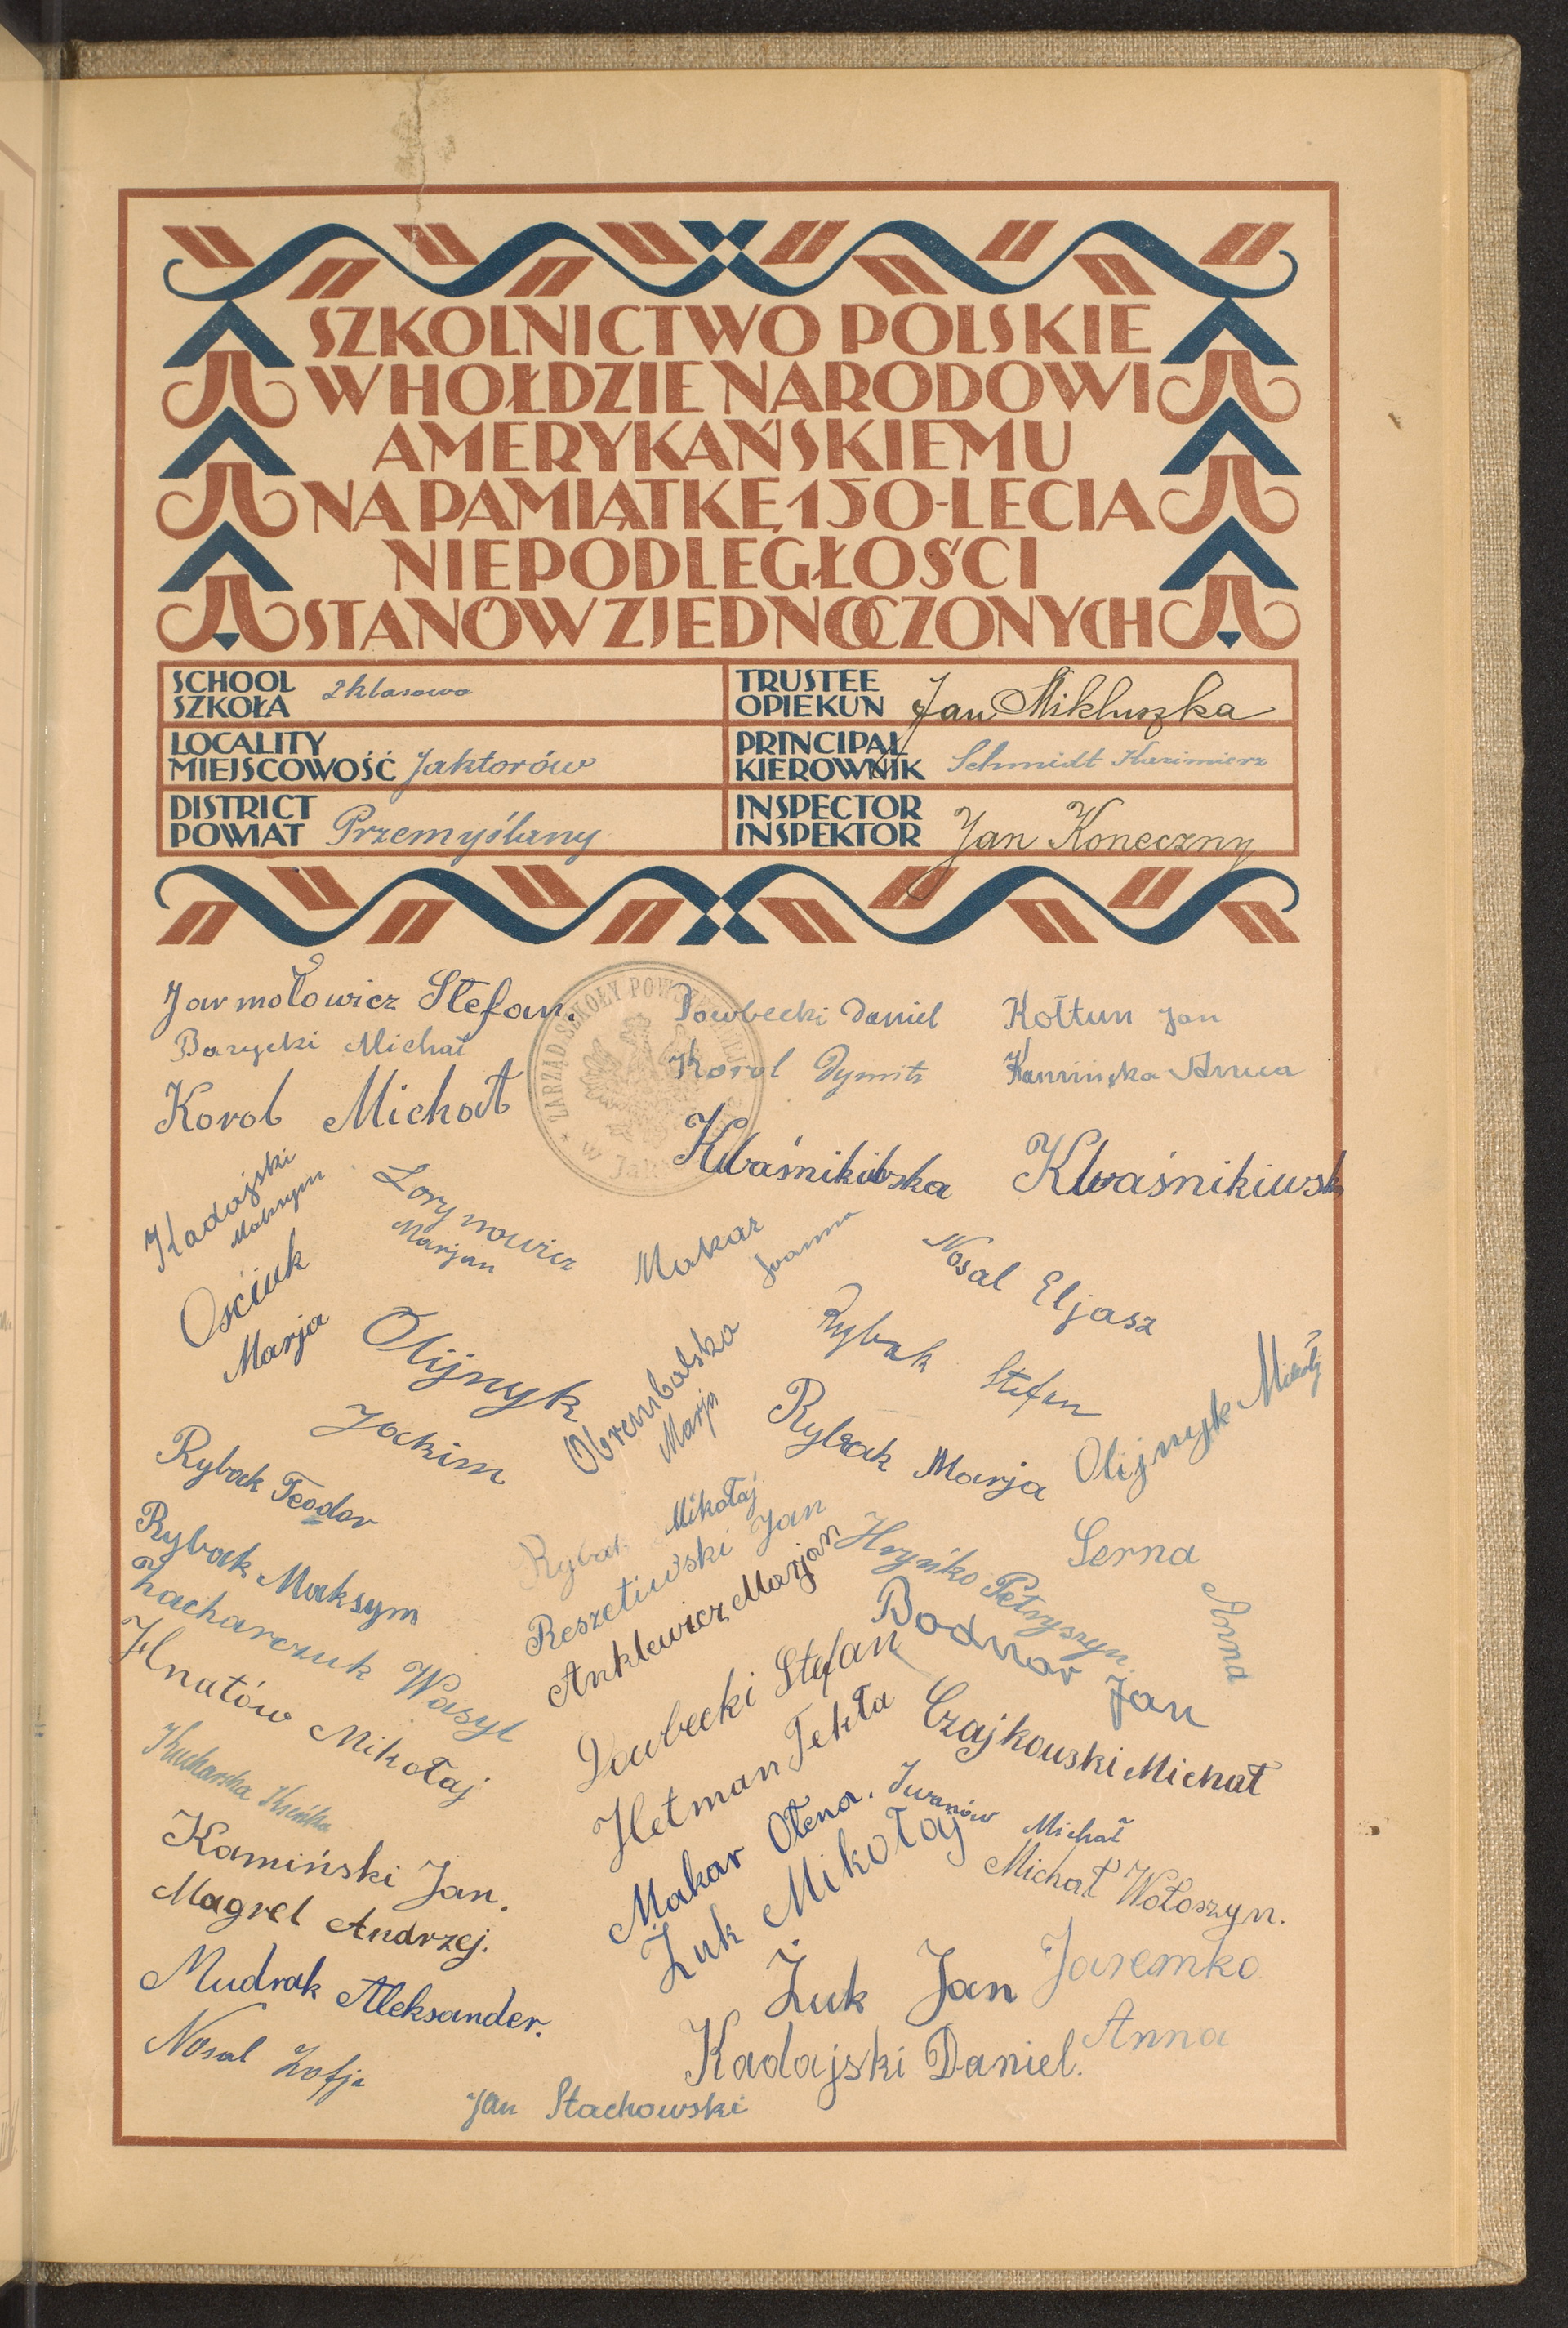 SZKOLNICTWO POLSKIE
W HOŁDZIE NARODOWI
AMERYKAŃSKIEMU
NA PAMIĄTKĘ 150-LECIA
NIEPODLEGŁOŚCI
STANÓW ZJEDNOCZONYCH
SCHOOL
SZKOŁA 2 klasowa
TRUSTEE
OPIEKUN Jan Mikluszka
LOCALITY
MIEJSCOWOŚĆ Jaktorów
PRINCIPAL
KIEROWNIK Schmidt Kazimierz
DISTRICT
POWIAT Przemyślany
INSPECTOR
INSPEKTOR Jan Koneczny
ZARZĄD SZKOŁY POWSZECHNEJ
w
Jarmołowicz Stefan.
Dowbecki Daniel
Kołtun Jan
Barycki Michał
Korol Dymitr
Kamińska Anna
Korol Michał
Kwaśnikiwska
Kwaśnikiwsk
Kadajski
Maksym
Lorynowicz
Marjan
Makar
Joanna
Nosal Eljasz
Ościuk
Marja
Olijnyk
Jockim
Obrembalska
Marja
Rybak Stefan
Rybak Marja
Olijnyk Mikołaj
Rybak Teodor
Rybak Mikołaj
Rybak Maksym
Reszetiwski Jan
Hryńko Petryszyn.
Serna
Anna
Zacharczuk Wasyl
Anklewicz Marjan
Bodnar Jan
Hnatów Mikołaj
Dowbecki Stefan
Czajkowski Michał
Kucharska
Hetman Tekła
Kamiński Jan.
Makar Ołena.
Iwanów Michał
Magrel Andrzej.
Żuk Mikołaj
Michał Wołoszyn.
Mudrak Aleksander.
Żuk Jan
Jaremko
Anna
Nosal Zofja
Kadajski Daniel.
Jan Stachowski